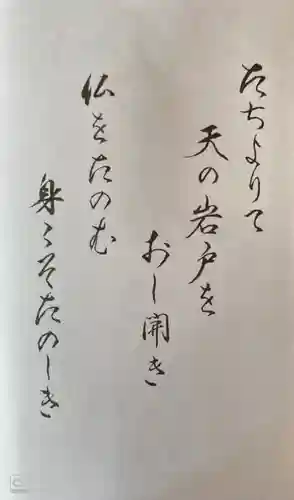 たちよりて
天の岩戸を
おし開き
仏をたのむ
身こそたのしき